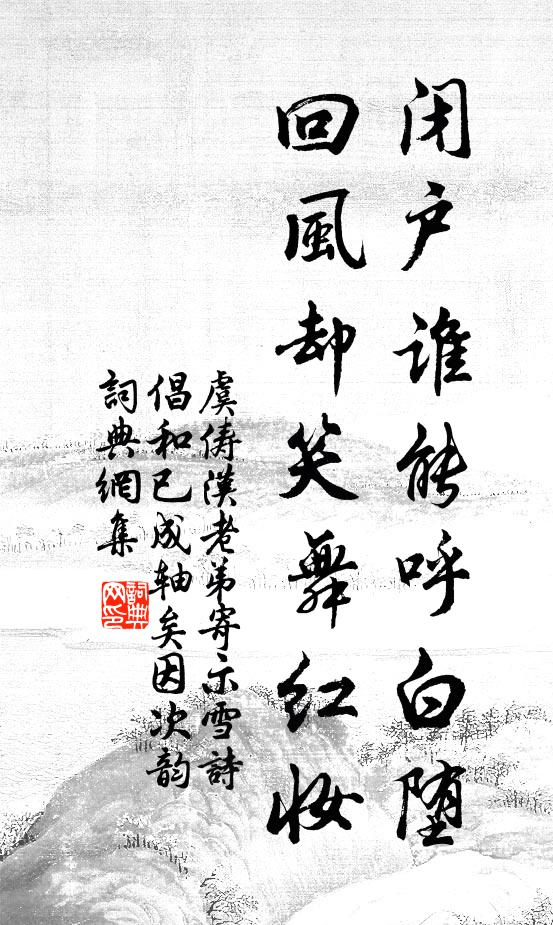 闭户谁能呼白堕
回風却笑舞红妝
虞俦漢老弟寄示雪詩
倡和已成轴矣因次韵
詞典網集
詞典網印